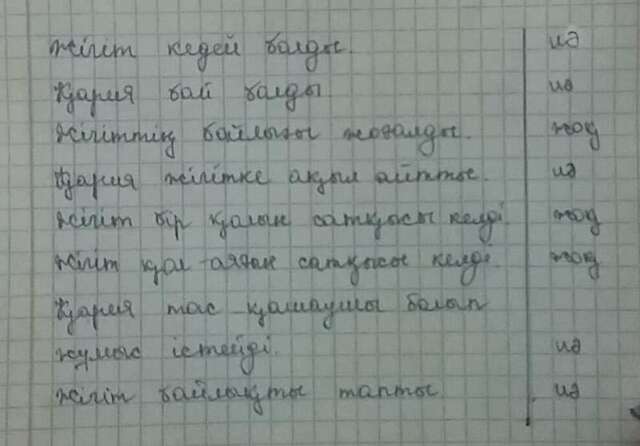 Жігіт кедей болды. иә
Қария бай болды иә
Жігіттің байлығы жоғалды. жоқ
Қария жігітке ақыл айтты. иә
Жігіт бір қолын сатқысы келді жоқ
Жігіт қол-аяғын сатқысы келді жоқ
Қария тас қашаушы болып
жұмыс істейді. иә
Жігіт байлықты тапты иә